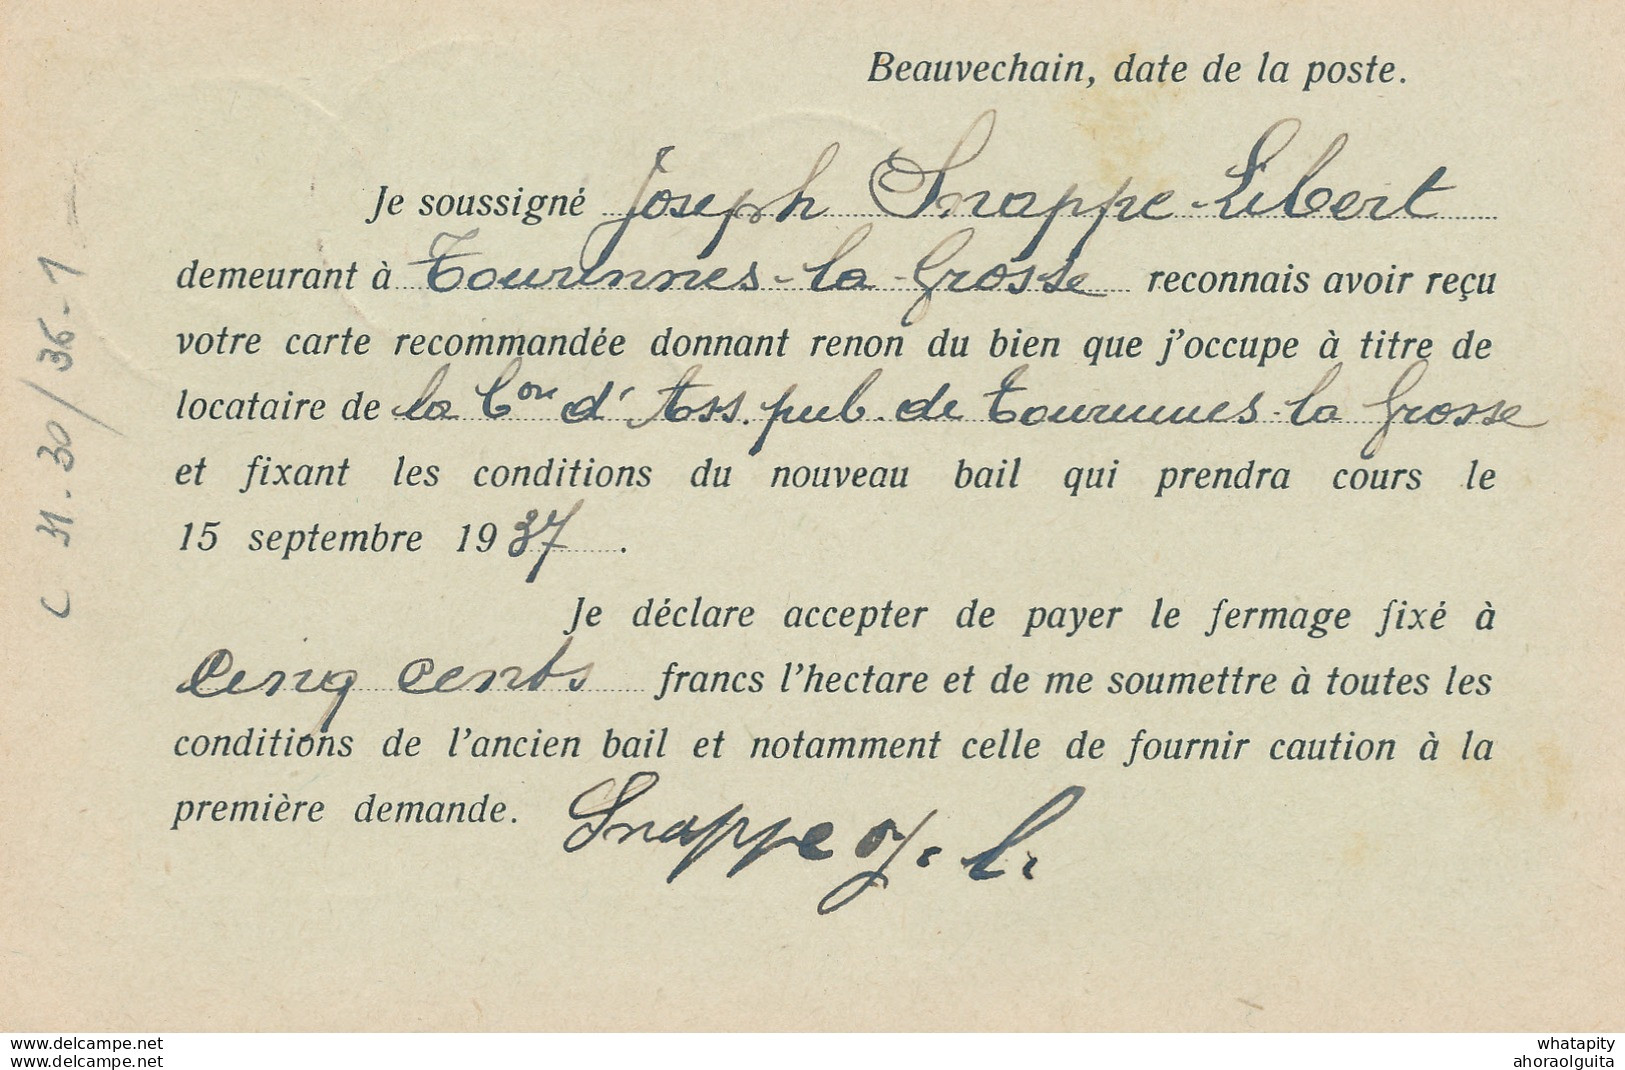 Beauvechain, date de la poste.
Je soussigné Joseph Snappe-Libert
demeurant à Tourinnes-la-Grosse reconnais avoir reçu
votre carte recommandée donnant renon du bien que j'occupe à titre de
locataire de la Con d' Ass. pub. de Tourinnes-la Grosse
et fixant les conditions du nouveau bail qui prendra cours le
15 septembre 1937.
Je déclare accepter de payer le fermage fixé à
Cinq cents francs l'hectare et de me soumettre à toutes les
conditions de l'ancien bail et notamment celle de fournir caution à la
première demande. Snappe J. L.
C 31.30/36-1
delcampe.net
delcampe.net
whatapity
ahoraolguita